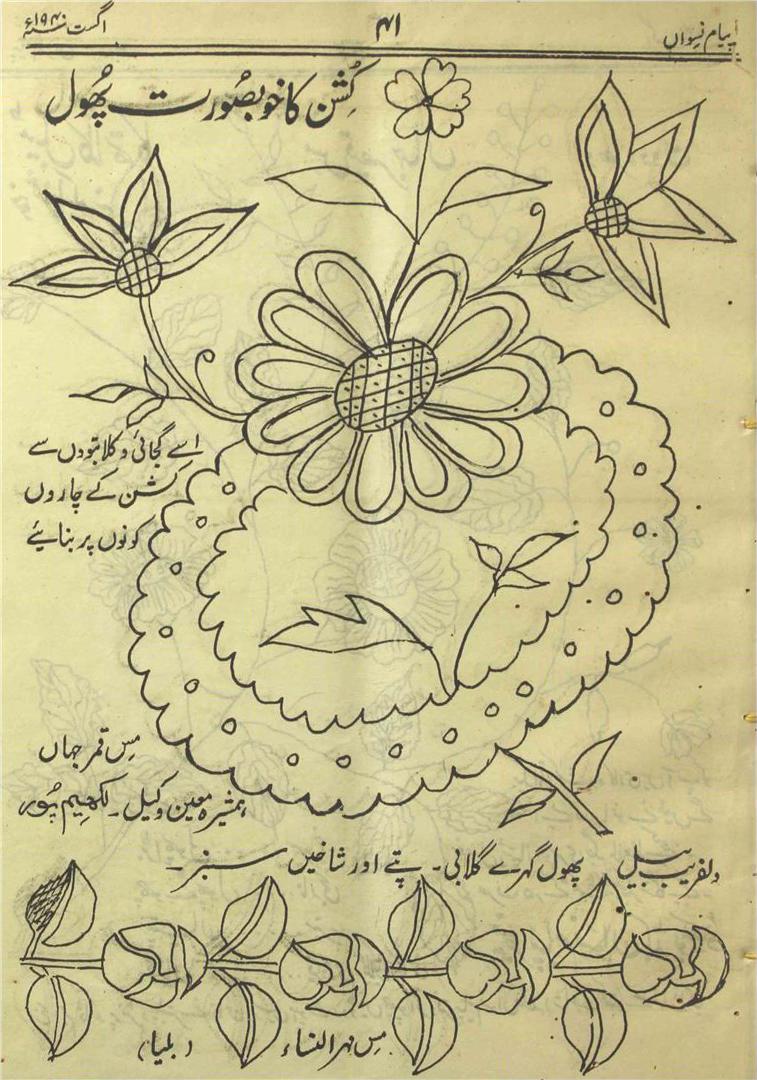 پیام نسواں
۴۱
اگست سنہ ۱۹۴۰ء
کُشن کا خوبصُورت پھُول
اسے گجائی و کلابتودں سے
کشن کے چاروں
کونوں پر بنایئے
مِس قمر جہاں
ہمشیرہ معین وکیل۔ لکھیم پُور
دلفریب بیل پھول گہرے گلابی۔ پتے اور شاخیں سبز۔
مِس مہر النساء (بلیا)